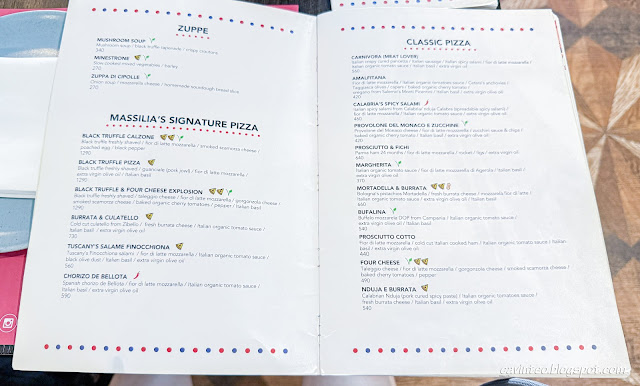 ZUPPE
MUSHROOM SOUP
Mushroom soup / black truffle tapenade / crispy rosemary
340
MINESTRONE
Slow cooked mixed vegetables / barley
270
ZUPPA DI CIPOLLE
Onion soup / mozzarella cheese / homemade sourdough bread slice
270
MASSILIA'S SIGNATURE PIZZA
BLACK TRUFFLE CALZONE
Black truffle freshly shaved / fior di latte mozzarella / smoked scamorza cheese /
poached egg / black pepper
1290
BLACK TRUFFLE PIZZA
Black truffle freshly shaved / guanciale (pork jowl) / fior di latte mozzarella /
Italian basil / extra virgin olive oil
1290
BLACK TRUFFLE & FOUR CHEESE EXPLOSION
Black truffle freshly shaved / taleggio cheese / fior di latte mozzarella / gorgonzola cheese /
smoked scamorza cheese / baked organic cherry tomatoes / pepper / Italian basil
1290
BURRATA & CULATELLO
Cold cut culatello from Zibello / fresh burrata cheese / Italian organic tomato sauce /
Italian basil / extra virgin olive oil
730
TUSCANY'S SALAME FINOCCHIONA
Tuscany's Finocchiona salami / fior di latte mozzarella / Italian organic tomato sauce /
black olive dust / Italian basil / extra virgin olive oil
560
CHORIZO DE BELLOTA
Spanish chorizo de Bellota / fior di latte mozzarella / Italian organic tomato sauce /
Italian basil / extra virgin olive oil
590
CLASSIC PIZZA
CARNIVORA (MEAT LOVER)
Italian organic tomato sauce / Italian basil / extra virgin olive oil
560
AMALFITANA
420
CALABRIA'S SPICY SALAMI
Italian organic tomato sauce / Italian basil / extra virgin olive oil
PROVOLONE DEL MONACO E ZUCCHINE
Provolone del Monaco cheese / fior di latte mozzarella / zucchini sauce & chips /
baked organic cherry tomato / Italian basil / extra virgin olive oil
420
PROSCIUTTO & FICHI
Parma ham 24 months / fior di latte mozzarella / rocket / figs / extra virgin olive oil
640
MARGHERITA
Italian organic tomato sauce / fior di latte mozzarella di Agerola / Italian basil /
extra virgin olive oil
MORTADELLA & BURRATA
Bologna's pistachios Mortadella / fresh burrata cheese / mozzarella fior di latte /
Italian organic tomato sauce / Italian basil / extra virgin olive oil
660
BUFALINA
Buffalo mozzarella DOP from Campania / Italian organic tomato sauce /
extra virgin olive oil / Italian basil
540
PROSCIUTTO COTTO
Fior di latte mozzarella / cold cut Italian cooked ham / Italian organic tomato sauce /
Italian basil / extra virgin olive oil
440
FOUR CHEESE
Taleggio cheese / fior di latte mozzarella / gorgonzola cheese / smoked scamorza cheese /
baked cherry tomatoes / pepper / Italian basil
490
NDUJA E BURRATA
Calabrian Nduja (pork cured spicy paste) / Italian organic tomato sauce /
fresh burrata cheese / Italian basil / extra virgin olive oil
540
gavinteo.blogspot.com